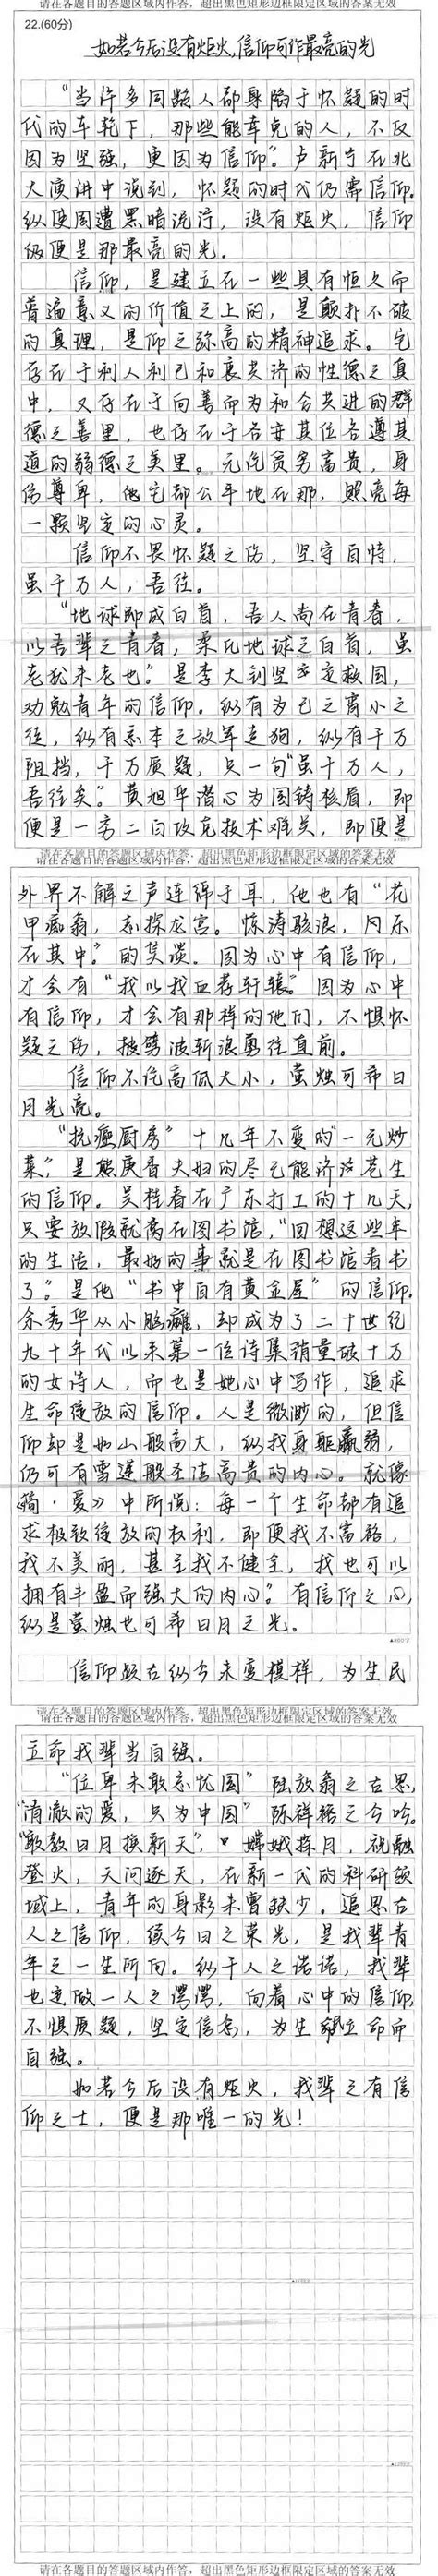 请在各题目的答题区域内作答，超出黑色矩形边框限定区域的答案无效
22.(60分)
如若今后没有炬火,信仰可作最亮的光
“当许多同龄人都身陷于怀疑的时
代的车轮下，那些能幸免的人，不仅
因为坚强，更因为信仰”。卢新宁在北
大演讲中说到，怀疑的时代仍需信仰。
纵使周遭黑暗流淌，没有炬火，信仰
仍便是那最亮的光。
信仰，是建立在一些具有恒久而
普遍意义的价值之上的，是颠扑不破
的真理，是仰之弥高的精神追求。它
存在于利人利己和衷共济的性德之真
中，又存在于向善而为和合共进的群
德之善里，也存在于各安其位各尊其
道的弱德之美里。无论贫穷高贵，身
份尊卑，他它都公平地在那，照亮每
一颗坚定的心灵。
信仰不畏怀疑之伤，坚守自恃，
虽千万人，吾往。
“地球即成白首，吾人尚在青春，
以吾辈之青春，柔化地球之白首，虽
老犹未老也。”是李大钊坚定救国，
劝勉青年的信仰。纵有为己之宵小之
徒，纵有忘本之放军走狗，纵有千万
阻挡，千万质疑，只一句“虽千万人，
吾往矣。”黄旭华潜心为国铸核盾，即
便是一穷二白攻克技术难关，即便是
请在各题目的答题区域内作答，超出黑色矩形边框限定区域的答案无效
请在各题目的答题区域内作答，超出黑色矩形边框限定区域的答案无效
外界不解之声连绵于耳，他也有“花
甲痴翁，志探龙宫。惊涛骇浪，乐
在其中。”的笑谈。因为心中有信仰，
才会有“我以我血荐轩辕”。因为心中
有信仰，才会有那样的他们，不惧怀
疑之伤，披劈波斩浪勇往直前。
信仰不论高低大小，萤烛可希日
月光亮。
“抗癌厨房”十几年不变的“一元炒
菜”，是熊庚香夫妇的尽己能济沧苍生
的信仰。吴桂春在广东打工的十几天，
只要放假就离在图书馆，“回想这些年
的生活，最好的事就是在图书馆看书
了”。是他“书中自有黄金屋”的信仰。
余秀华从小脑瘫，却成为了二十世纪
九十年代以来第一位诗集销量破十万
的女诗人，而也是她心中写作，追求
生命绽放的信仰。人是微渺的，但信
仰却是如山般高大，纵我身躯羸弱，
仍可有雪莲般圣洁高贵的内心。就像
《简·爱》中所说：每一个生命都有追
求极致绽放的权利，即便我不富裕，
我不美丽，甚至我不健全，我也可以
拥有丰盈而强大的内心。”有信仰之心，
纵是萤烛也可希日月之光。
信仰跃古纵今未变模样，为生民
请在各题目的答题区域内作答，超出黑色矩形边框限定区域的答案无效
请在各题目的答题区域内作答，超出黑色矩形边框限定区域的答案无效
立命我辈当自强。
“位卑未敢忘忧国”陆放翁之古思，
“清澈的爱，只为中国”陈祥榕之今吟。
“敢教日月换新天”，嫦娥探月，祝融
登火，天问逐天，在新一代的科研领
域上，青年的身影未曾缺少。追思古
人之信仰，续今日之荣光，是我辈青
年之一生所向。纵千人之诺诺，我辈
也定做一人之谔谔，向着心中的信仰，
不惧质疑，坚定信念，为生民立命而
自强。
如若今后没有炬火，我辈之有信
仰之士，便是那唯一的光！
请在各题目的答题区域内作答，超出黑色矩形边框限定区域的答案无效